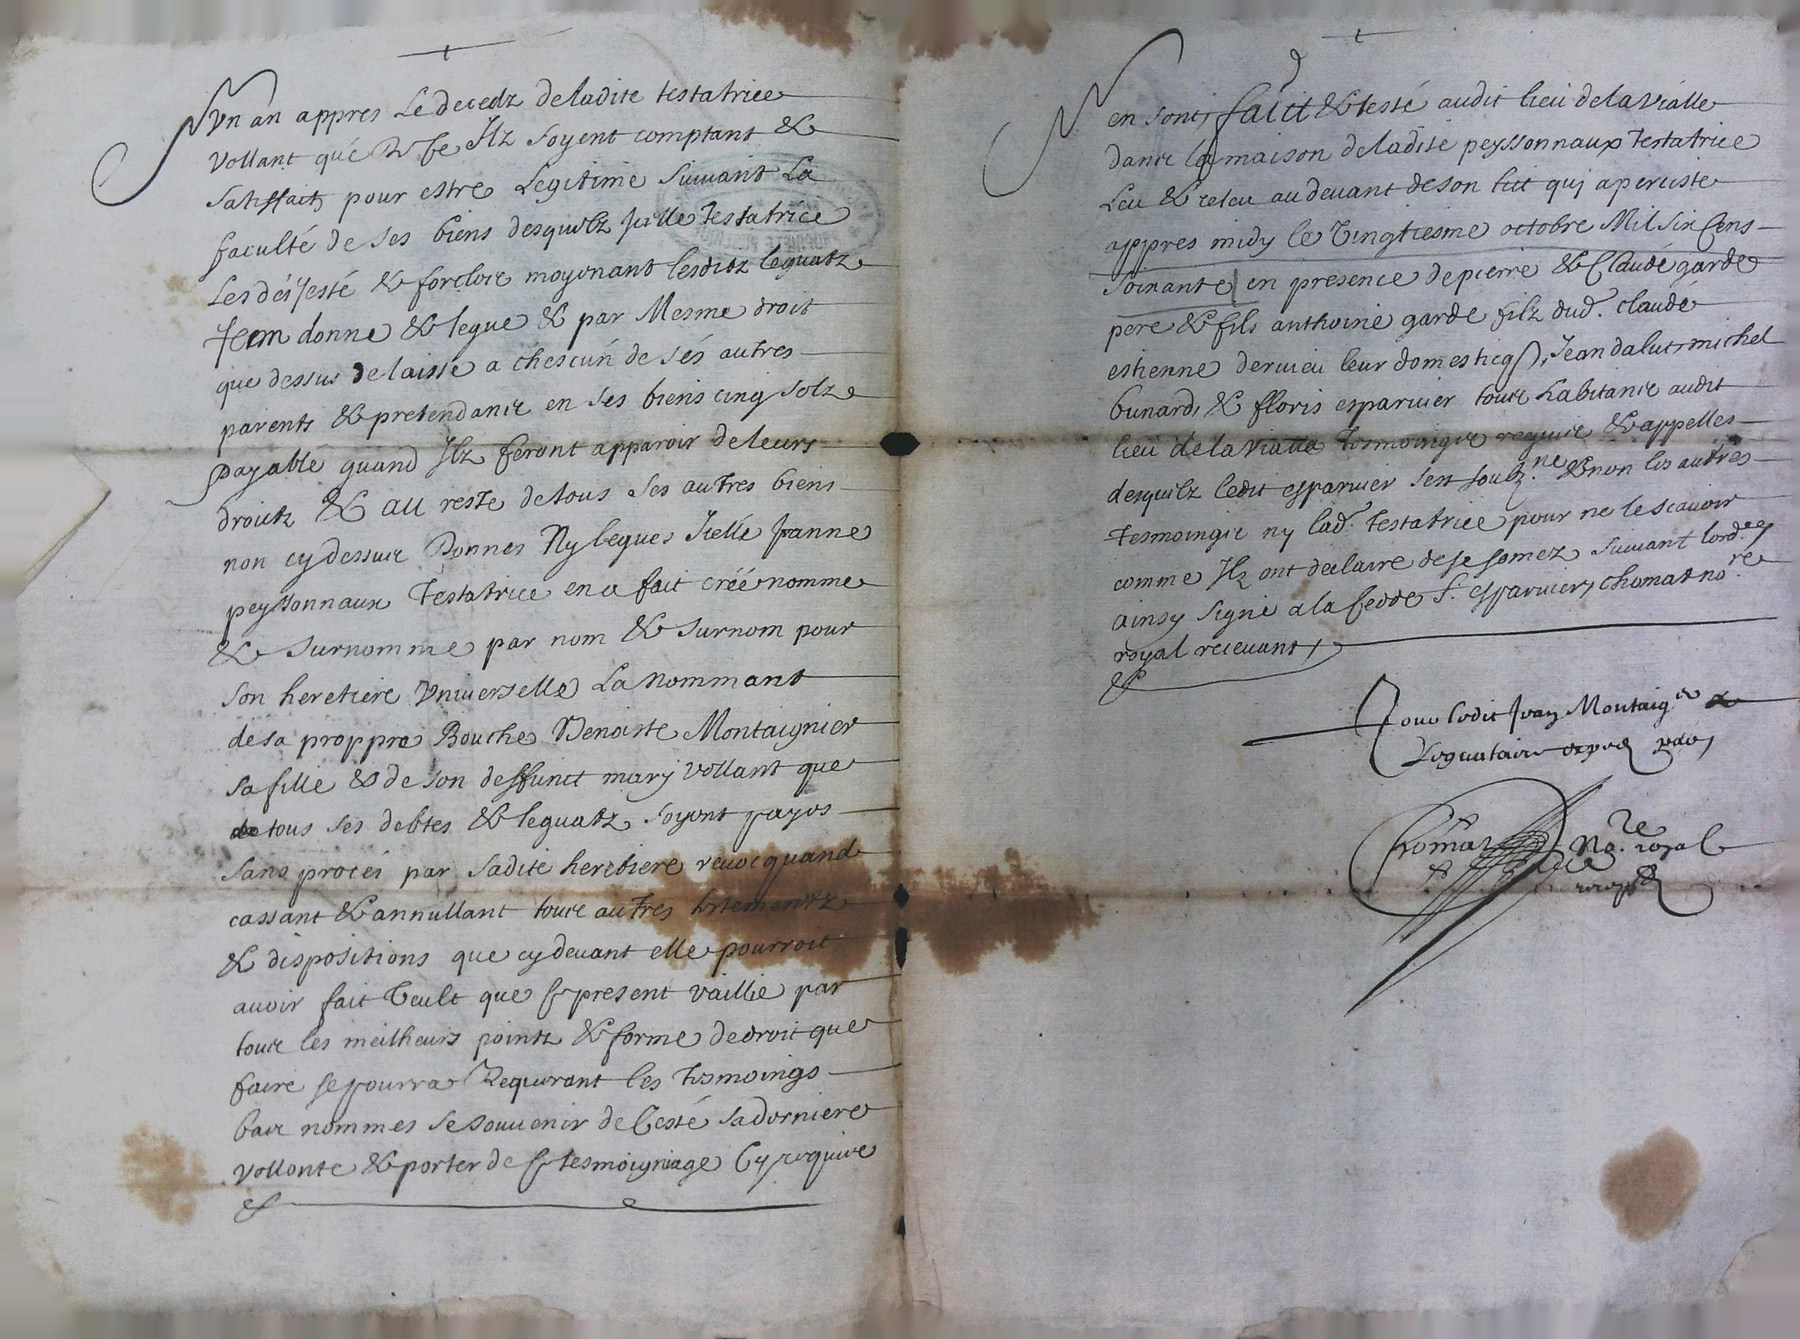 Un an appres Le decedz deladite testatrice
vollant que Ilz soyent comptant &
satisfaitz pour estre Legitime suivant La
faculté de ses biens desquelz Jcelle Testatrice
Les desJesté & forcloir moyonant lesditz leguatz
Jtem donne & legue & par Mesme droit
que dessus delaisse a chescun de sés autres
parents & pretendantz en ses biens cinq solz
payable quand Jlz feront apparoir de leurs
droictz & au reste de tous ses autres biens
non cy dessus Donnes Ny legues Jcellé Jeanne
peyssonnaux Testatrice en a fait créé nomme
& surnomme par nom & surnom pour
son heretiere Universelle La Nommant
de sa proppre Bouche Benoiste Montaignier
sa fille & de son deffunct mary vollant que
tous ses debtes & leguatz soyent payes
sans proces par sadite heretiere revocquand
cassant & annullant tous autres testementz
& dispositions que cy devant elle pourroit
avoir fait Veult que se present vaillie par
tous les meilheurs pointz & forme de droit que
faire se pourra Requerant les Tesmoings
bas nommes se souvenir de Cesté sa derniere
vollonte & porter de se tesmoigniage Cy require
en sont, faict & testé audit lieu de la vialle
dans la maison deladite peyssonnaux Testatrice
Leu & releu au devant de son lict qui a perciste
appres midy le Vingtiesme octobre Mil six Cens
soixante en presence de pierre & Claude garde
pere & fils anthoine garde filz dud. claude
estienne dervieu leur domesticq, Jean daluer michel
bunard, & floris esparvier tous habitans audit
lieu de la vialle Tesmoingz requis & appelles
desquelz ledit esparvier sest soubz.ne & non les autres
Tesmoingz ny lad. Testatrice pour ne le scavoir
comme Jlz ont declaire de se somez suivant lord.ce
ainsy signé a la Cedde f. esparvier, chomat no.re
royal recevant
Pour ledit Jean Montaig.er
Leguataire
Chomat No.re royal